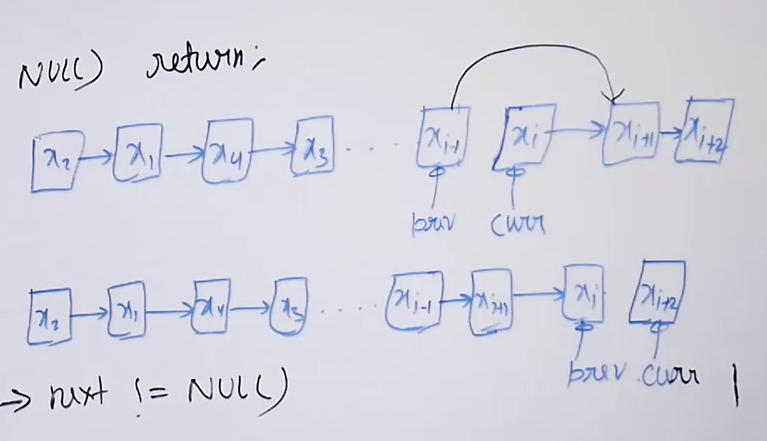 NULL) return;
x₂ → x₁ → x₄ → x₃ ..... xᵢ₋₁ xᵢ → xᵢ₊₁ → xᵢ₊₂
prev curr
x₂ → x₁ → x₄ → x₃ ..... xᵢ₋₁ → xᵢ₊₁ → xᵢ xᵢ₊₂
prev curr
→ next != NULL)